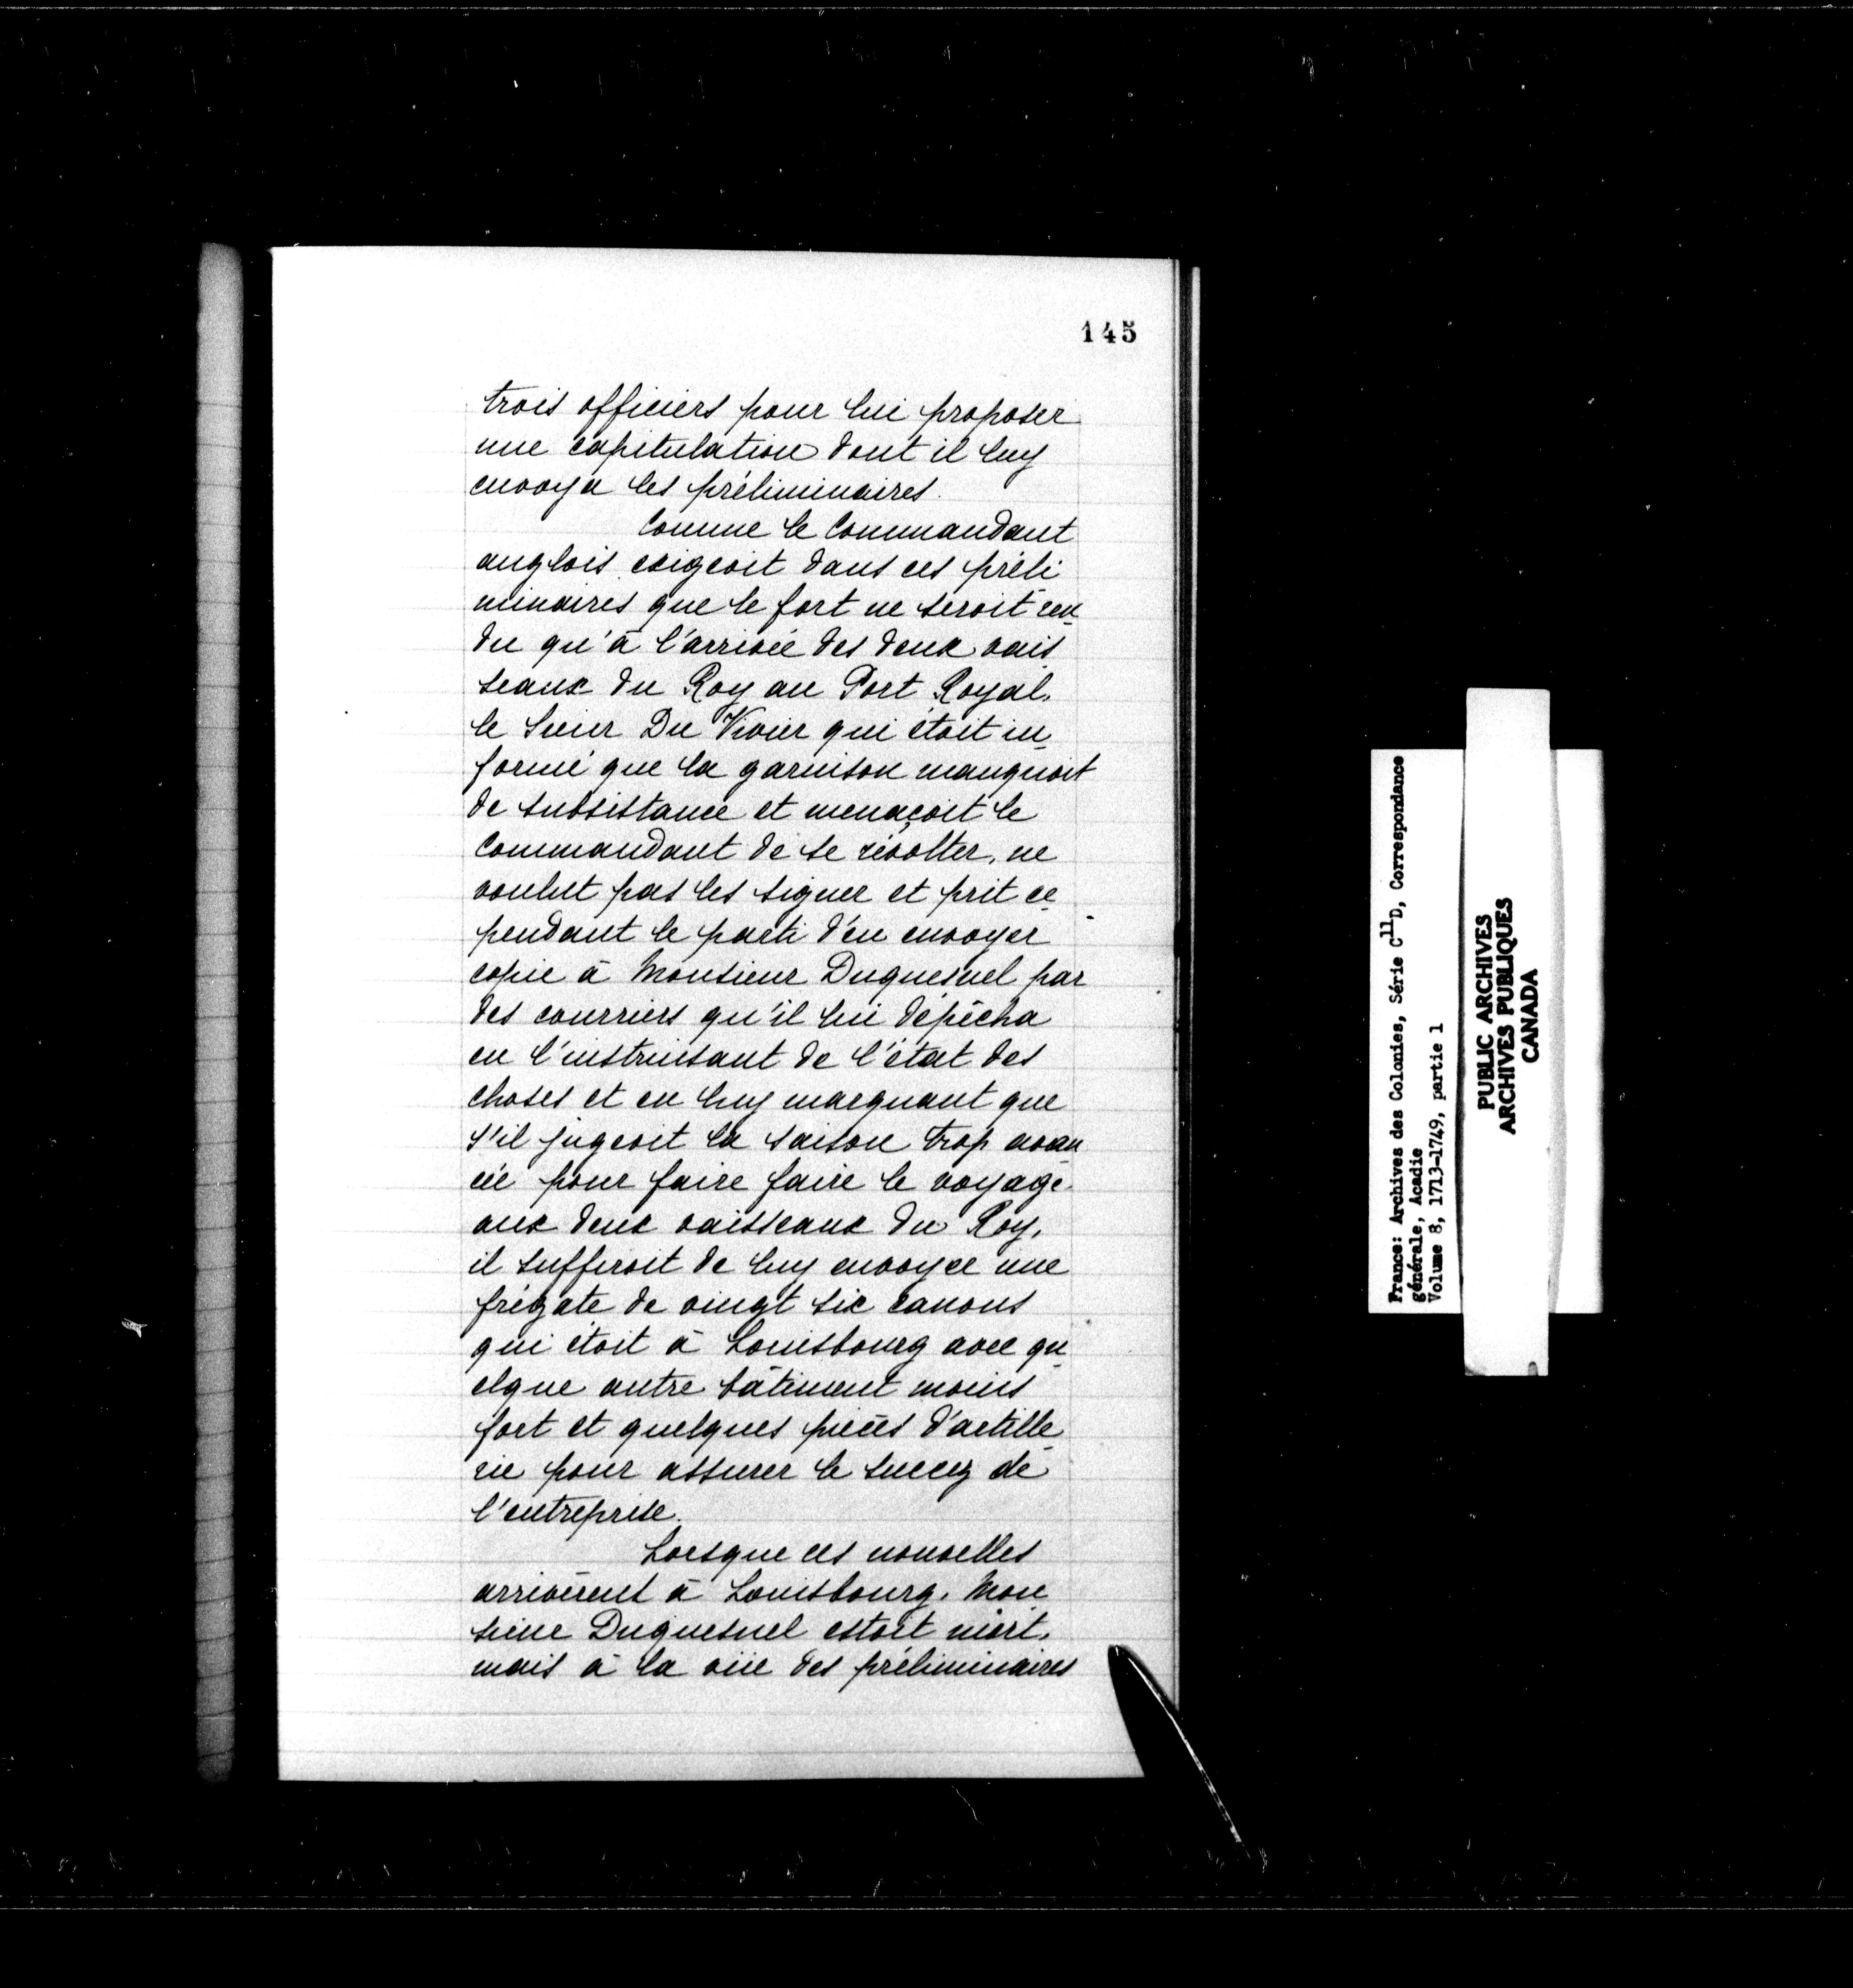 145
trois officiers pour lui proposer
une capitulation dont il luy
envoya les préliminaires.
Comme le Commandant
anglois exigeoit dans ces préli
minaires que le fort ne seroit ren
du qu'à l'arrivée des deux vais
seaux du Roy au Port Royal,
le Sieur Du Vivier qui étoit in
formé que la garnison manquoit
de subsistance et menaçoit le
Commandant de se révolter, ne
voulut pas les signer et prit ce
pendant le parti d'en envoyer
copie à Monsieur Duquesnel par
des courriers qu'il lui dépêcha
en l'instruisant de l'état des
choses et en luy marquant que
s'il jugeoit la saison trop avan
cée pour faire faire le voyage
aux deux vaisseaux du Roy,
il suffiroit de luy envoyer une
frégate de vingt six canons
qui étoit à Louisbourg avec qu
elque autre bâtiment moins
fort et quelques pièces d'artille
rie pour assurer le succez de
l'entreprise.
Lorsque ces nouvelles
arrivèrent à Louisbourg, Mon
sieur Duquesnel estoit mort,
mais à la vüe des préliminaires
France: Archives des Colonies, Série C11D, Correspondance
générale, Acadie
Volume 8, 1713-1749, partie 1
PUBLIC ARCHIVES
ARCHIVES PUBLIQUES
CANADA